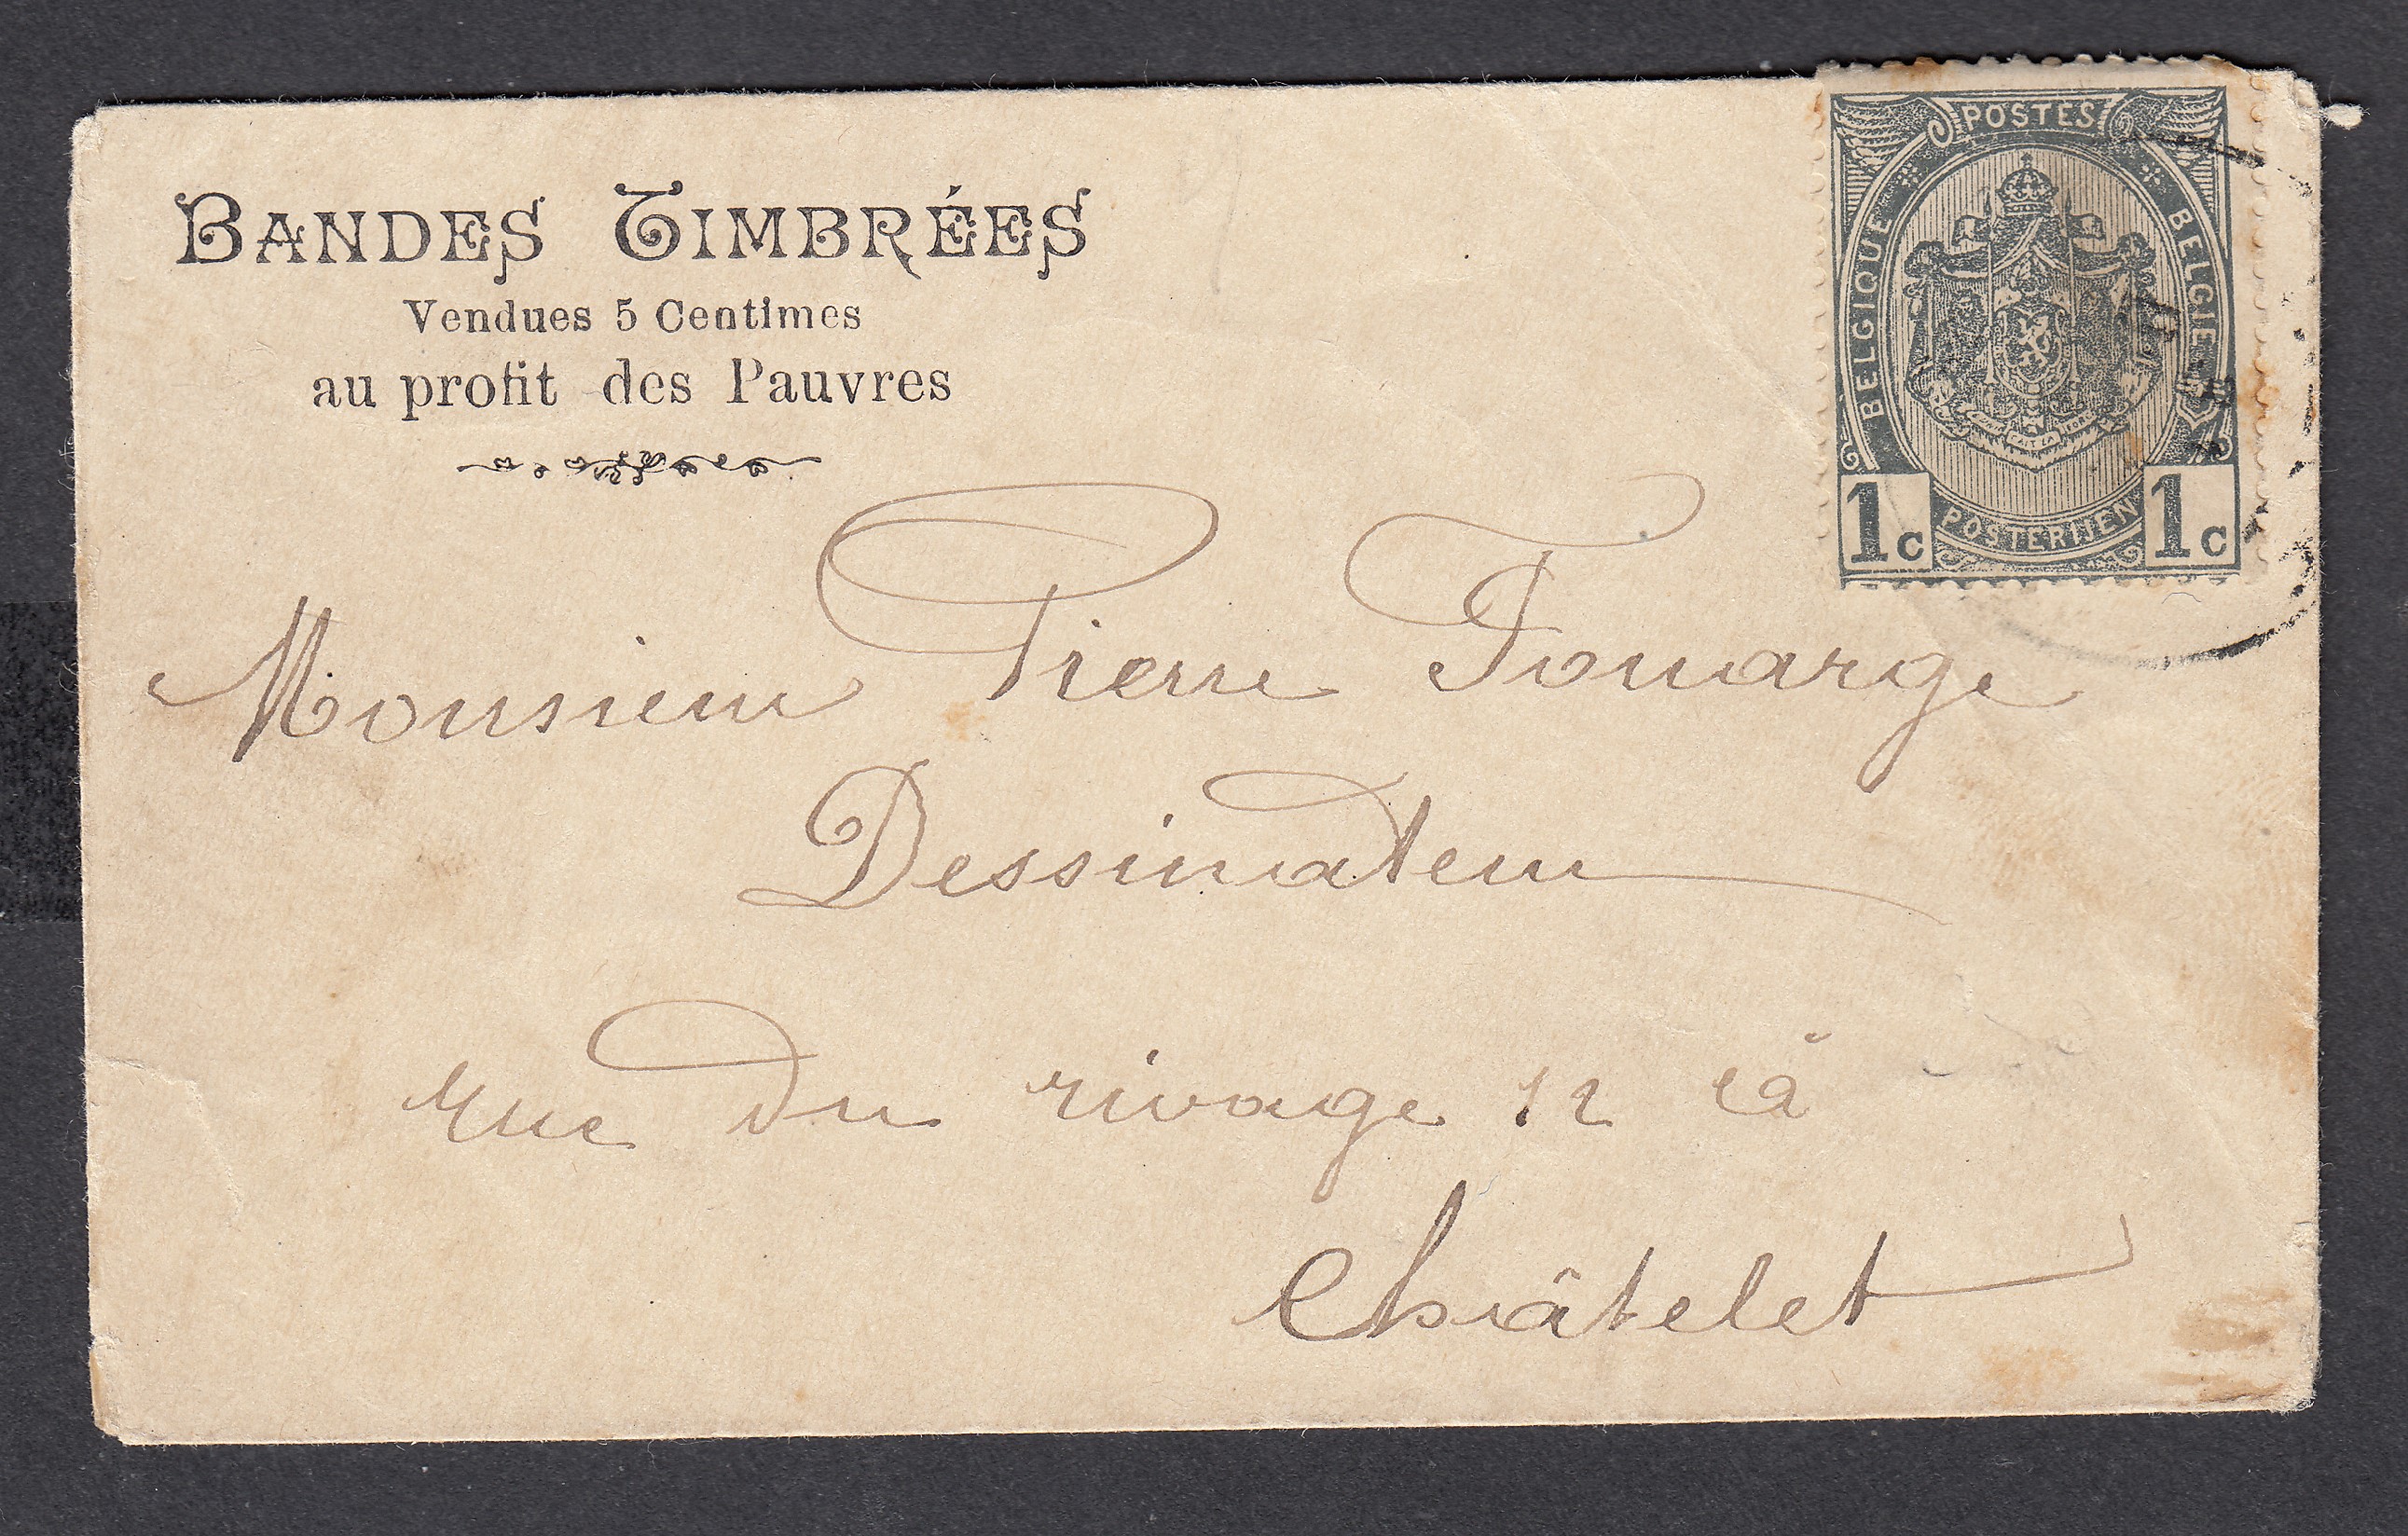 BANDES TIMBRÉES
Vendues 5 Centimes
au profit des Pauvres
POSTES
BELGIQUE
BELGIE
POSTERIJEN
1c 1c
Monsieur Pierre Fouarge
Dessinateur
rue du rivage 12 à
Châtelet